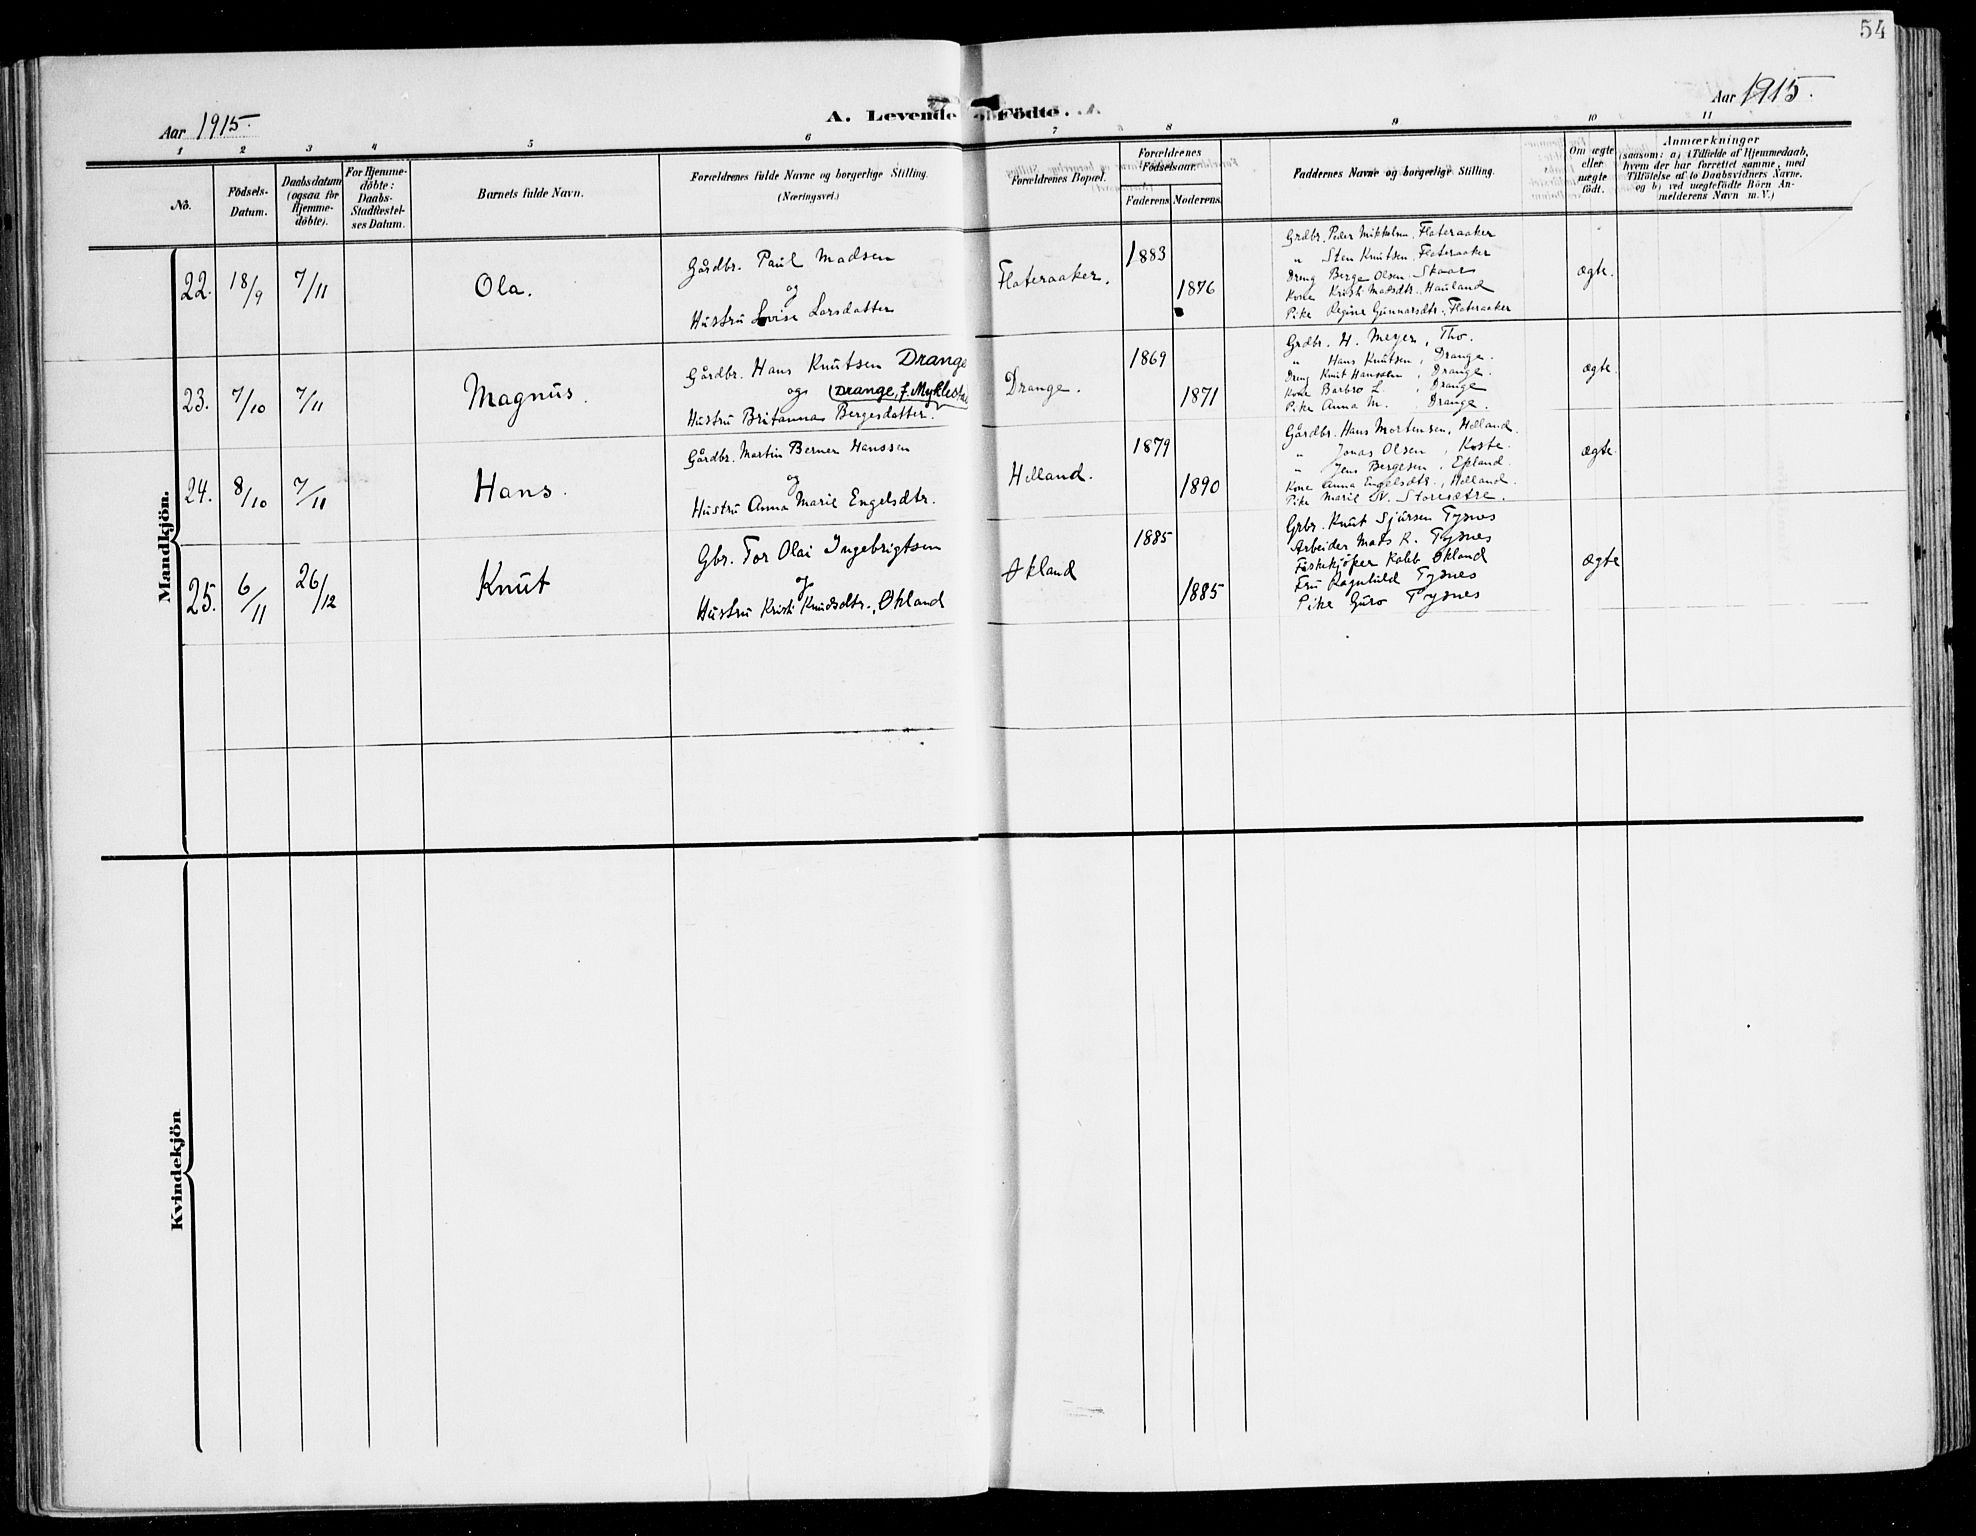 54
Aar 1915.
A. Levende Födte.
Aar 1915.
1 2 3 4 5 6 7 8 9 10 11
No.
Födsels-
Datum.
Daabsdatum
(ogsaa för
Hjemme-
döbte).
For Hjemme-
döbte:
Daabs-
Stadfæstel-
ses Datum.
Barnets fulde Navn.
Forældrenes fulde Navne og borgerlige Stilling.
(Næringsvei.)
Forældrenes Bopæl.
Forældrenes
Födselsaar.
Faderens Moderens.
Faddernes Navne og borgerlige Stilling.
Om ægte
eller
uægte
födt.
Anmærkninger
(saasom: a) i Tilfælde af Hjemmedaab,
hvem der har forrettet samme, med
Tilföielse af to Daabsvidners Navne.
og b) ved uægtefödte Börn An-
melderens Navn m. V.)
Mandkjön.
22. 18/9 7/11
Ola.
Gårdbr. Paul Madsen
og
Hustru Lovise Larsdatter
Flateraaker.
1883
1876
Grdbr. Peder Mikkelsen, Flateraaker
" Sten Knutsen, Flateraaker
Dreng Berge Olsen, Skaar
Kone Kristi Madsdtr. Hauland
Pike Regine Gunnarsdtr., Flateraaker
ægte.
23. 7/10 7/11
Magnus.
Gårdbr. Hans Knutsen Drange
og (Drange, f. Myklestad
Hustru Britanna Bergesdatter.
Drange.
1869
1871
Grdbr. H. Meyer, Tho.
" Hans Knutsen, Drange.
Dreng Knut Hanssen, Drange.
Kone Barbro L. , Drange
Pike Anna M. , Drange.
ægte.
24. 8/10 7/11
Hans.
Gårdbr. Martin Berner Hanssen
og
Hustru Anna Marie Engelsdtr.
Helland.
1879
1890
Gårdbr. Hans Mortensen, Helland.
" Jonas Olsen, Koste.
" Jens Bergesen, Epland.
Kone Anna Engelsdtr., Helland.
Pike Marie N. Storesætre.
ægte.
25. 6/11 26/12
Knut
Gbr. Tor Olai Ingebrigtsen
og
Hustru Kristi Knudsdtr., Økland
Økland
1885
1885
Grbr. Knut Sjursen Tysnes
Arbeider Mats K. Tysnes
Fiskekjøper Rabb. Økland
Fru Ragnhild Tysnes
Pike Guro Tysnes
ægte
Kvindekjön